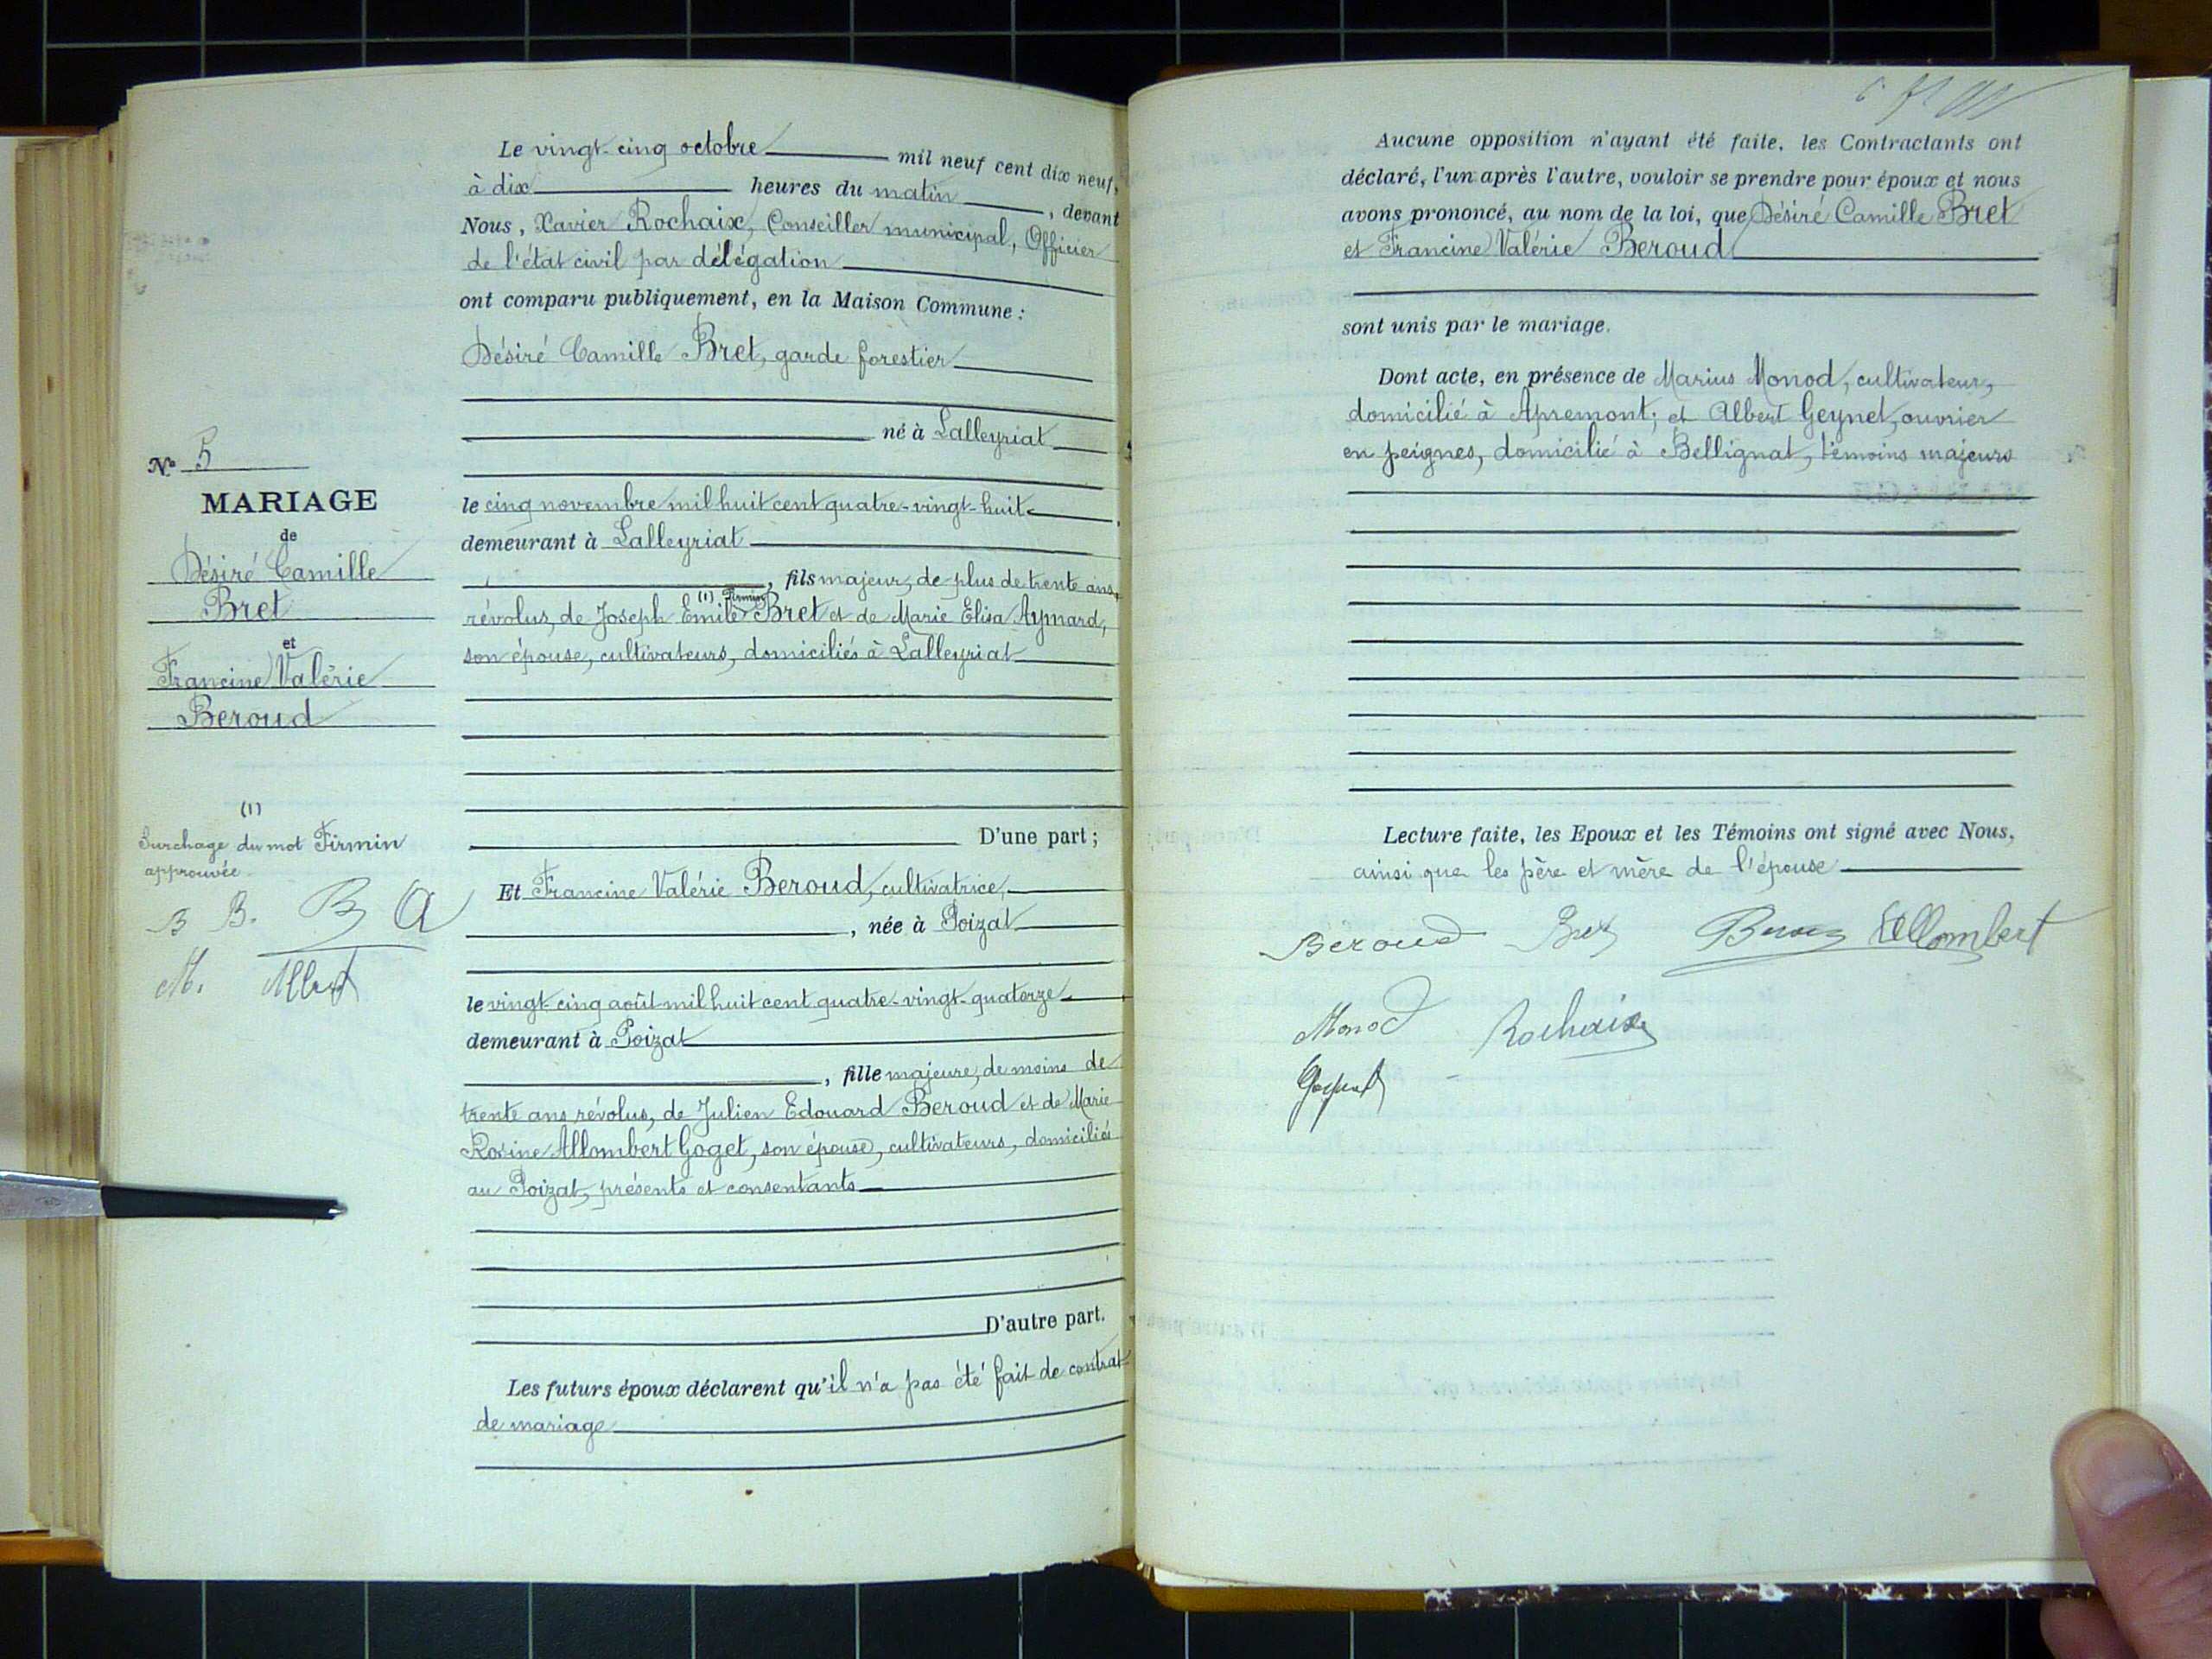 N° 5
MARIAGE
de
Désiré Camille
Bret
et
Francine Valérie
Beroud
(1)
Surchage du mot Firmin
approuvée.
B B. B A
M.
Le vingt-cinq octobre mil neuf cent dix neuf,
à dix heures du matin, devant
Nous, Xavier Rochaix, Conseiller municipal, Officier
de l'état civil par délégation
ont comparu publiquement, en la Maison Commune :
Désiré Camille Bret, garde forestier
né à Lalleyriat
le cinq novembre mil huit cent quatre-vingt-huit
demeurant à Lalleyriat
, fils majeur, de plus de trente ans
(1) Firmin
révolus, de Joseph Emile Bret et de Marie Elisa Aymard,
son épouse, cultivateurs, domiciliés à Lalleyriat
D'une part ;
Et Francine Valérie Beroud, cultivatrice,
, née à Poizat
le vingt-cinq août mil huit cent quatre-vingt-quatorze
demeurant à Poizat
, fille majeure, de moins de
trente ans révolus, de Julien Edouard Beroud et de Marie
Rosine Allombert Goget, son épouse, cultivateurs, domiciliés
au Poizat, présents et consentants
D'autre part.
Les futurs époux déclarent qu'il n'a pas été fait de contrat
de mariage
Aucune opposition n'ayant été faite, les Contractants ont
déclaré, l'un après l'autre, vouloir se prendre pour époux et nous
avons prononcé, au nom de la loi, que Désiré Camille Bret
et Francine Valérie Beroud
sont unis par le mariage.
Dont acte, en présence de Marius Monod, cultivateur,
domicilié à Apremont; et Albert Geynet, ouvrier
en peignes, domicilié à Bellignat, témoins majeurs
Lecture faite, les Epoux et les Témoins ont signé avec Nous,
ainsi que les père et mère de l'épouse
Béroud Bret Allombert
Monod Rochaix